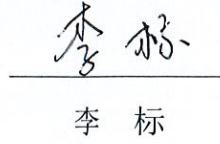 李标
李 标